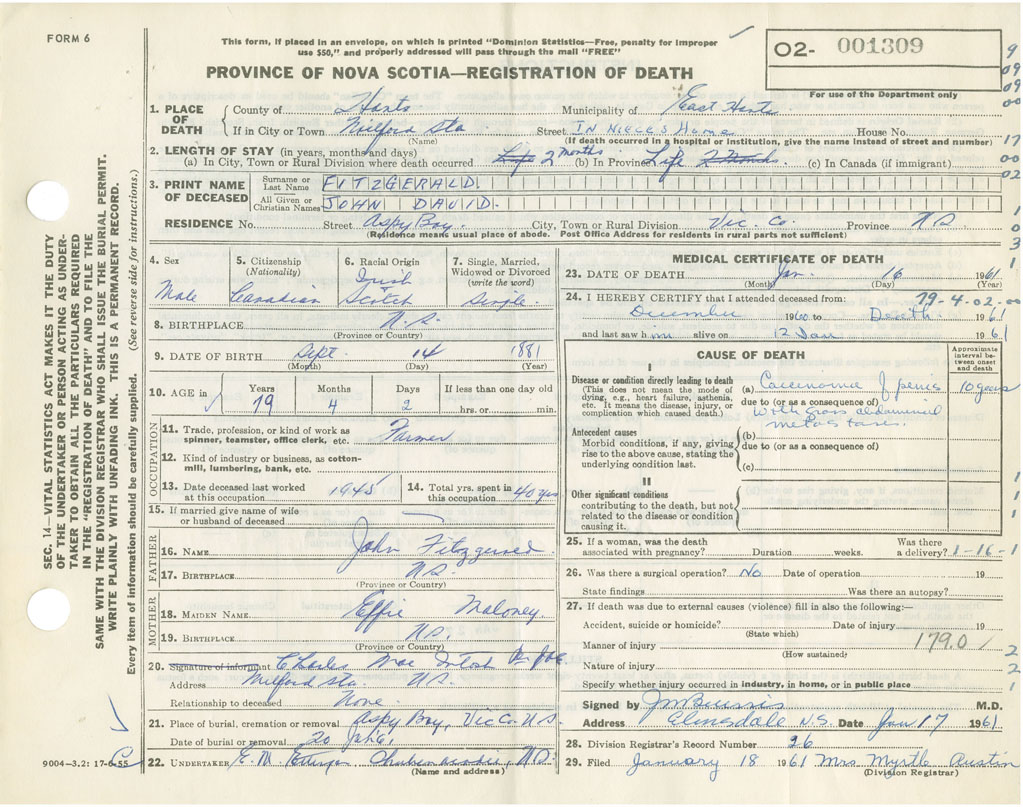 FORM 6
This form, if placed in an envelope, on which is printed "Dominion Statistics—Free, penalty for improper
use $50," and properly addressed will pass through the mail "FREE"
PROVINCE OF NOVA SCOTIA—REGISTRATION OF DEATH
O2- 001309
For use of the Department only
1. PLACE OF DEATH
County of Hants Municipality of East Hants
If in City or Town Milford Sta Street IN NIECES Home House No.
(Name) (If death occurred in a hospital or institution, give the name instead of street and number)
2. LENGTH OF STAY (in years, months and days)
(a) In City, Town or Rural Division where death occurred Life 2 months (b) In Province Life 2 Months (c) In Canada (if immigrant)
3. PRINT NAME OF DECEASED
Surname or Last Name FITZGERALD
All Given or Christian Names JOHN DAVID
RESIDENCE No. Street Aspy Bay City, Town or Rural Division Vic. Co. Province N S
(Residence means usual place of abode. Post Office Address for residents in rural parts not sufficient)
4. Sex
Male
5. Citizenship (Nationality)
Canadian
6. Racial Origin
Irish
Scotch
7. Single, Married, Widowed or Divorced (write the word)
Single
8. BIRTHPLACE N.S.
(Province or Country)
9. DATE OF BIRTH Sept 14 1881
(Month) (Day) (Year)
10. AGE in
Years Months Days If less than one day old
79 4 2 hrs. or min.
OCCUPATION
11. Trade, profession, or kind of work as spinner, teamster, office clerk, etc. Farmer
12. Kind of industry or business, as cotton-mill, lumbering, bank, etc.
13. Date deceased last worked at this occupation 1945
14. Total yrs. spent in this occupation 40 yrs
15. If married give name of wife or husband of deceased
FATHER
16. NAME John Fitzgerald
17. BIRTHPLACE N.S.
(Province or Country)
MOTHER
18. MAIDEN NAME Effie Maloney
19. BIRTHPLACE N.S.
(Province or Country)
20. Signature of informant Charles Mac Intosh
Address Milford Sta. N.S.
Relationship to deceased None
21. Place of burial, cremation or removal Aspy Bay, Vic Co. N.S.
Date of burial or removal 20 Jan 61
22. UNDERTAKER E. M. Ettinger Shubenacadie, N.S.
(Name and address)
MEDICAL CERTIFICATE OF DEATH
23. DATE OF DEATH Jan. 16 1961
(Month) (Day) (Year)
24. I HEREBY CERTIFY that I attended deceased from: 79-4-02-00
December 1960 to Death 1961
and last saw him alive on 12 Jan 1961
CAUSE OF DEATH
Approximate interval between onset and death
I
Disease or condition directly leading to death
(This does not mean the mode of dying, e.g., heart failure, asthenia, etc. It means the disease, injury, or complication which caused death.)
(a) Carcinoma of penis 10 years
due to (or as a consequence of)
with gross abdominal
metastases.
Antecedent causes
Morbid conditions, if any, giving rise to the above cause, stating the underlying condition last.
(b)
due to (or as a consequence of)
(c)
II
Other significant conditions
contributing to the death, but not related to the disease or condition causing it.
25. If a woman, was the death associated with pregnancy? Duration weeks. Was there a delivery? 1-16-1
26. Was there a surgical operation? No Date of operation 19
State findings Was there an autopsy?
27. If death was due to external causes (violence) fill in also the following:—
Accident, suicide or homicide? Date of injury 19
(State which)
Manner of injury 179.0
(How sustained)
Nature of injury
Specify whether injury occurred in industry, in home, or in public place
Signed by M.D.
Address Elmsdale N.S. Date Jan 17 1961
28. Division Registrar's Record Number 26
29. Filed January 18 1961 Mrs Myrtle Austin
(Division Registrar)
SEC. 14—VITAL STATISTICS ACT MAKES IT THE DUTY
OF THE UNDERTAKER OR PERSON ACTING AS UNDER-
TAKER TO OBTAIN ALL THE PARTICULARS REQUIRED
IN THE "REGISTRATION OF DEATH" AND TO FILE THE
SAME WITH THE DIVISION REGISTRAR WHO SHALL ISSUE THE BURIAL PERMIT.
WRITE PLAINLY WITH UNFADING INK. THIS IS A PERMANENT RECORD.
Every item of information should be carefully supplied. (See reverse side for instructions.)
9004—3.2: 17-6-55